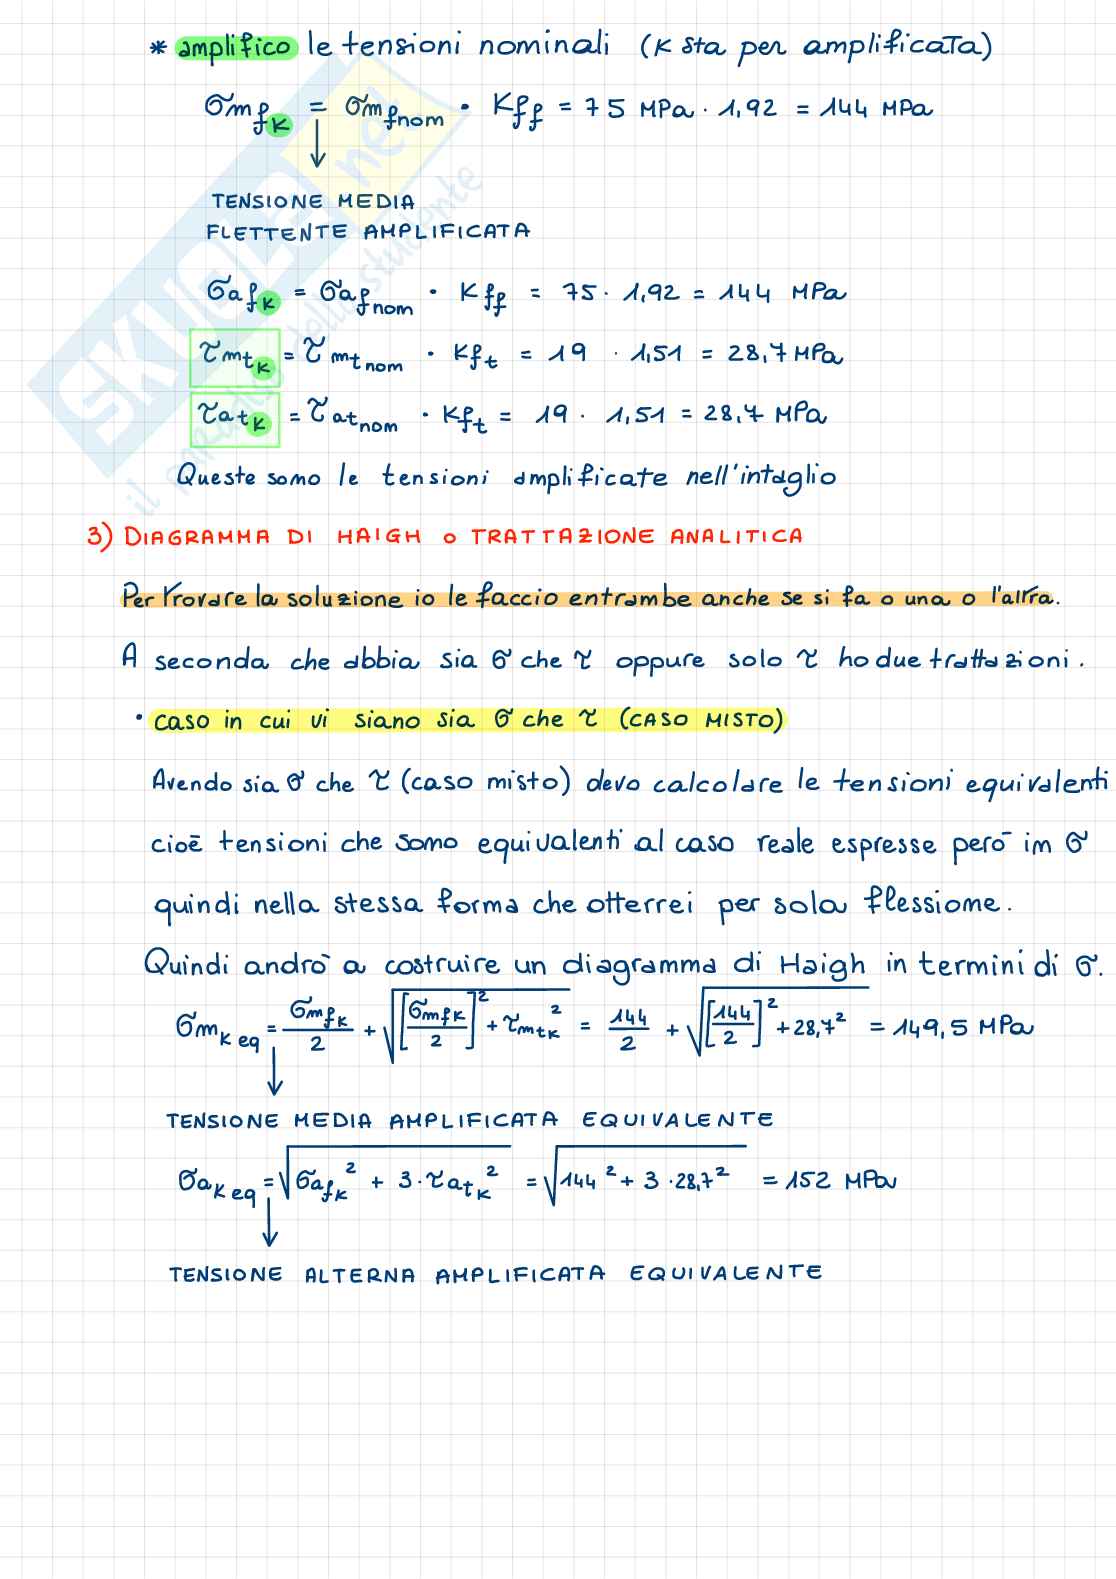 * amplifico le tensioni nominali (K sta per amplificata)
σmfK = σmfnom · Kff = 75 MPa · 1,92 = 144 MPa
TENSIONE MEDIA
FLETTENTE AMPLIFICATA
σafK = σafnom · Kff = 75 · 1,92 = 144 MPa
τmtK = τmtnom · Kft = 19 · 1,51 = 28,7 MPa
τatK = τatnom · Kft = 19 · 1,51 = 28,7 MPa
Queste sono le tensioni amplificate nell'intaglio
3) DIAGRAMMA DI HAIGH o TRATTAZIONE ANALITICA
Per trovare la soluzione io le faccio entrambe anche se si fa o una o l'altra.
A seconda che abbia sia σ che τ oppure solo τ ho due trattazioni.
• caso in cui vi siano sia σ che τ (CASO MISTO)
Avendo sia σ che τ (caso misto) devo calcolare le tensioni equivalenti
cioè tensioni che sono equivalenti al caso reale espresse però in σ
quindi nella stessa forma che otterrei per sola flessione.
Quindi andrò a costruire un diagramma di Haigh in termini di σ.
σmK eq = σmfK/2 + √([σmfK/2]² + τmtK²) = 144/2 + √([144/2]² + 28,7²) = 149,5 MPa
TENSIONE MEDIA AMPLIFICATA EQUIVALENTE
σaK eq = √(σafK² + 3·τatK²) = √(144² + 3·28,7²) = 152 MPa
TENSIONE ALTERNA AMPLIFICATA EQUIVALENTE
SKUOLA.net